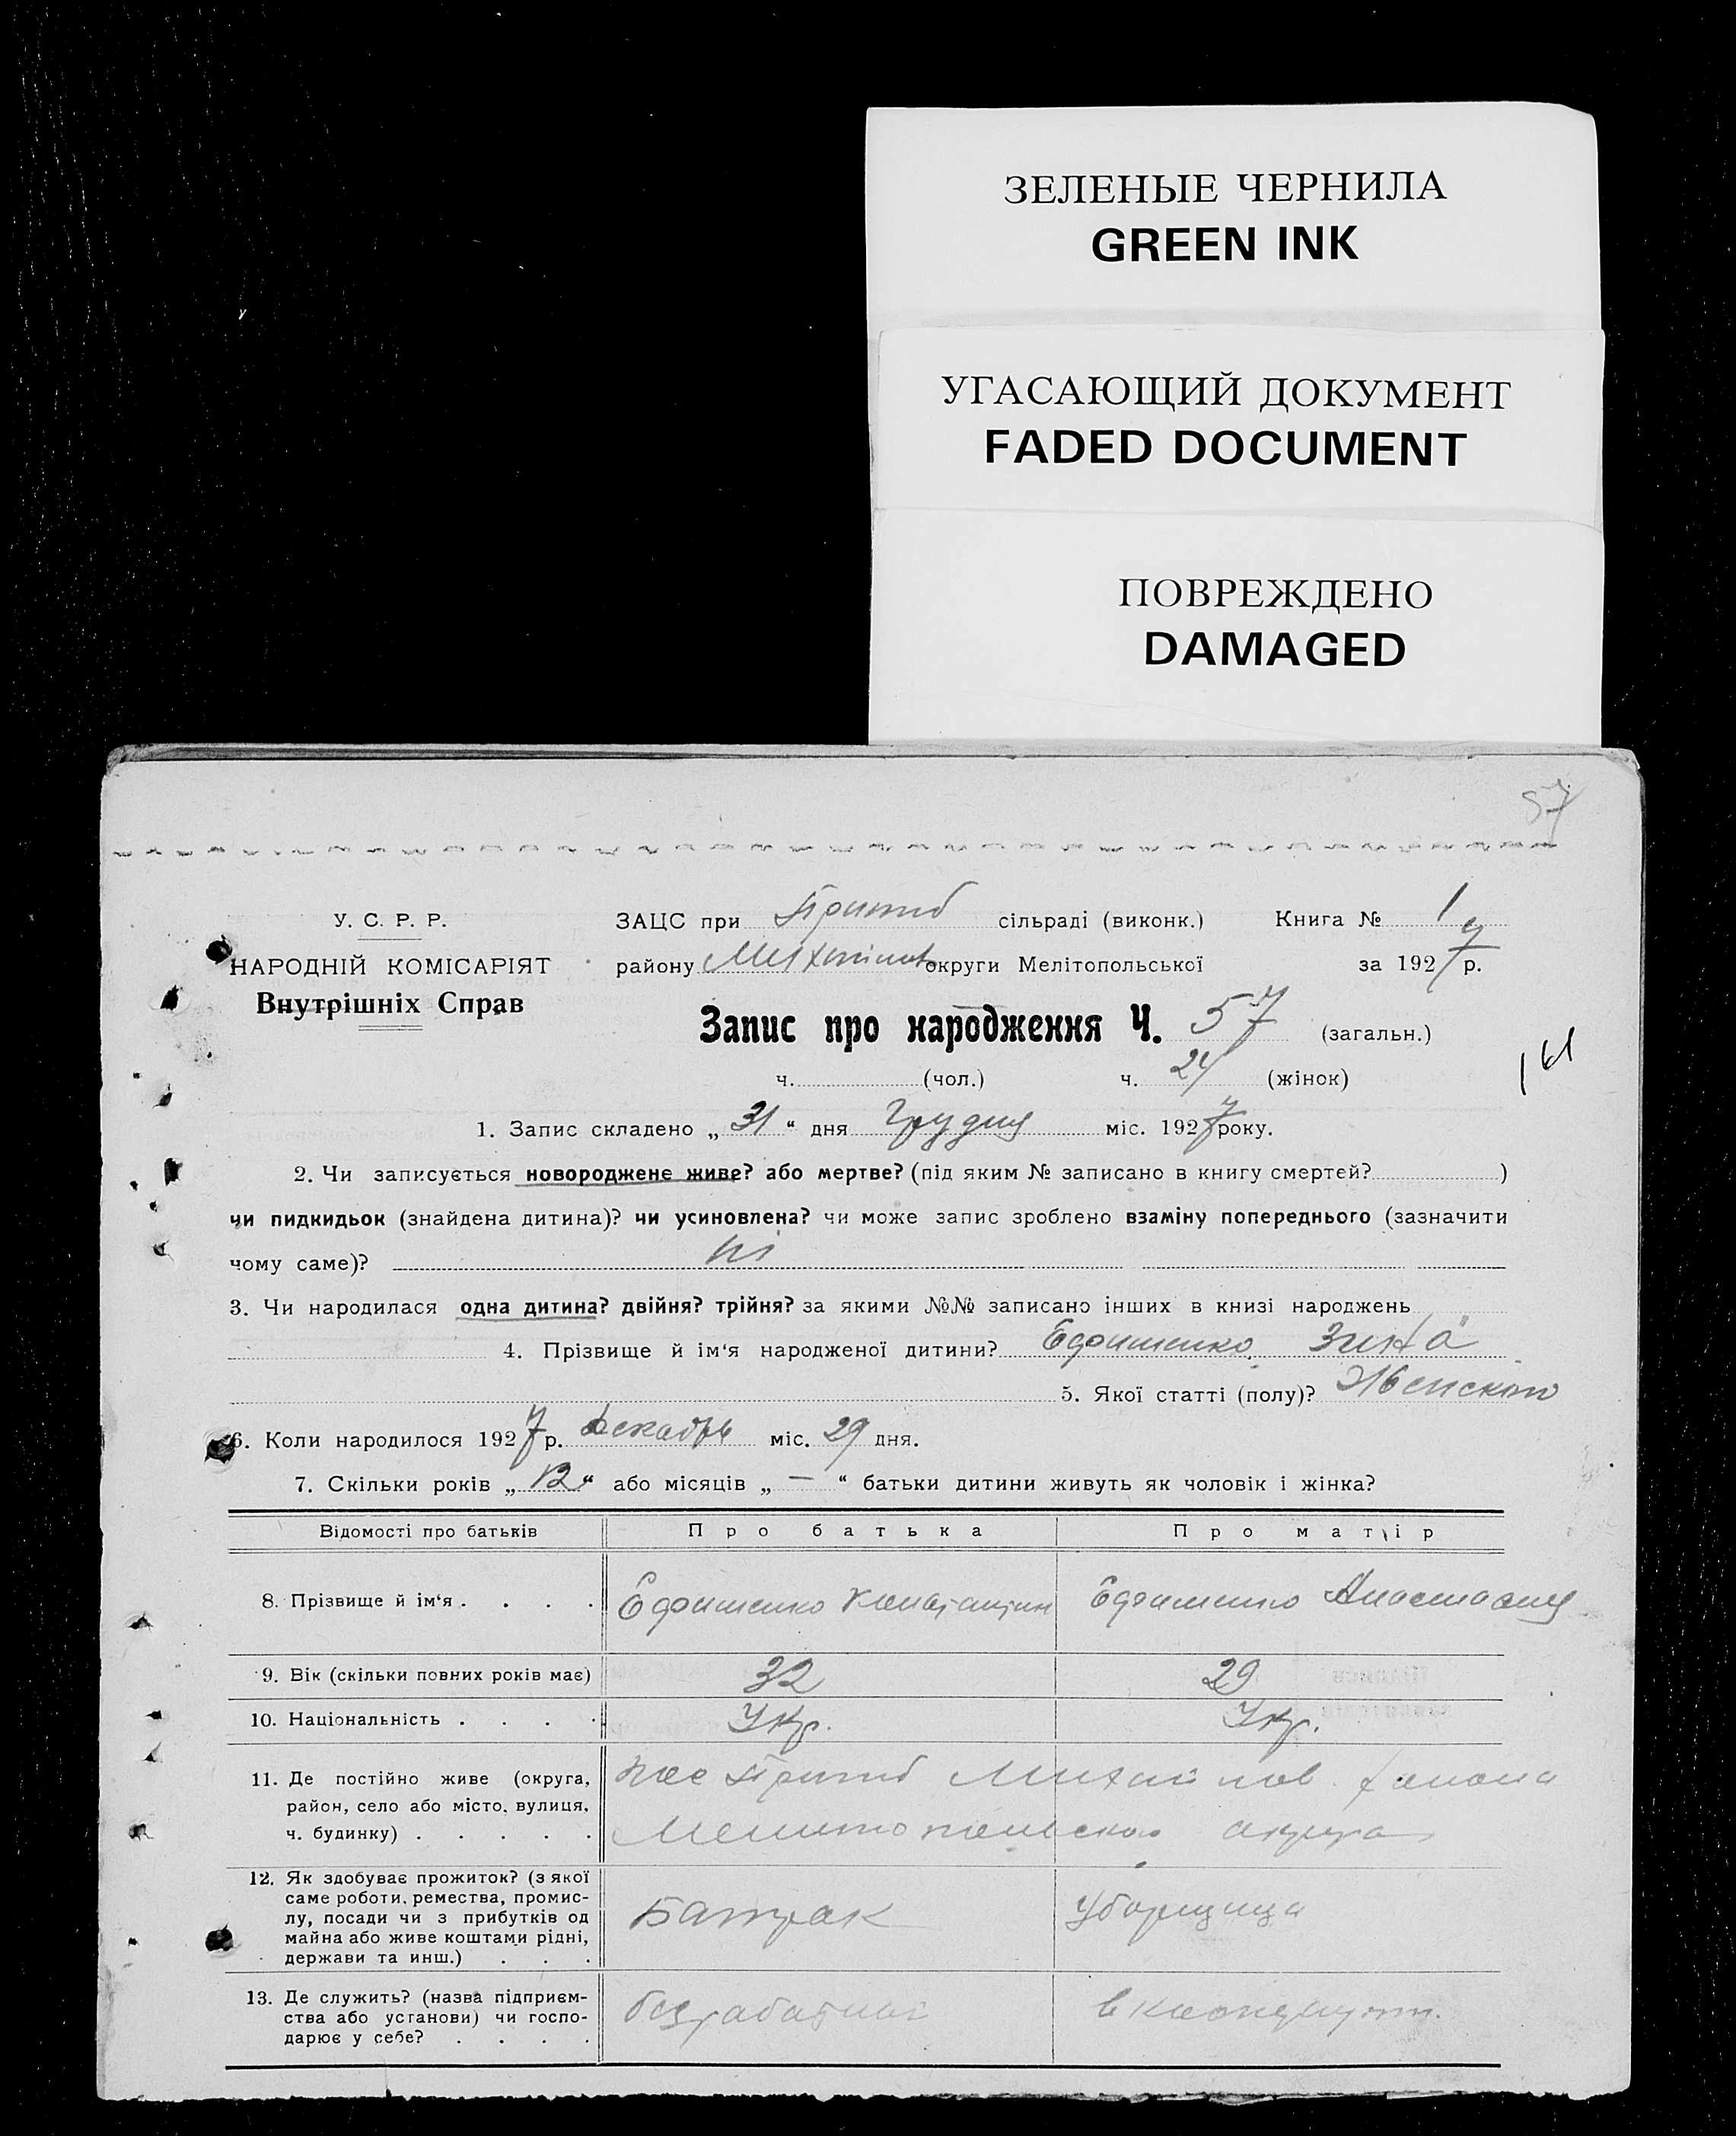 ЗЕЛЕНЫЕ ЧЕРНИЛА
GREEN INK
УГАСАЮЩИЙ ДОКУМЕНТ
FADED DOCUMENT
ПОВРЕЖДЕНО
DAMAGED
57
У. С. Р. Р.
НАРОДНІЙ КОМІСАРІЯТ
Внутрішніх Справ
ЗАЦС при Пришиб сільраді (виконк.) Книга № 1
району округи Мелітопольської за 1927 р.
Запис про народження Ч. 57 (загальн.)
ч. (чол.) ч. 24 (жінок)
1. Запис складено „ 31 “ дня Грудня міс. 1927 року.
2. Чи записується новороджене живе? або мертве? (під яким № записано в книгу смертей? )
чи пидкидьок (знайдена дитина)? чи усиновлена? чи може запис зроблено взаміну попереднього (зазначити
чому саме)? ні
3. Чи народилася одна дитина? двійня? трійня? за якими №№ записано інших в книзі народжень
4. Прізвище й ім‘я народженої дитини? Зина
5. Якої статті (полу)?
6. Коли народилося 1927 р. міс. 29 дня.
7. Скільки років „ 12 “ або місяців „ — “ батьки дитини живуть як чоловік і жінка?
Відомості про батьків Про батька Про матір
8. Прізвище й ім‘я . . . . Анастасия
9. Вік (скільки повних років має) 32 29
10. Національність . . . . Укр. Укр.
11. Де постійно живе (округа, Пришиб района
район, село або місто, вулиця,
ч. будинку) . . . . .
12. Як здобуває прожиток? (з якої
саме роботи, ремества, промис-
лу, посади чи з прибутків од Батрак Уборщица
майна або живе коштами рідні,
держави та инш.) . . .
13. Де служить? (назва підприєм-
ства або установи) чи госпо-
дарює у себе? . . . .